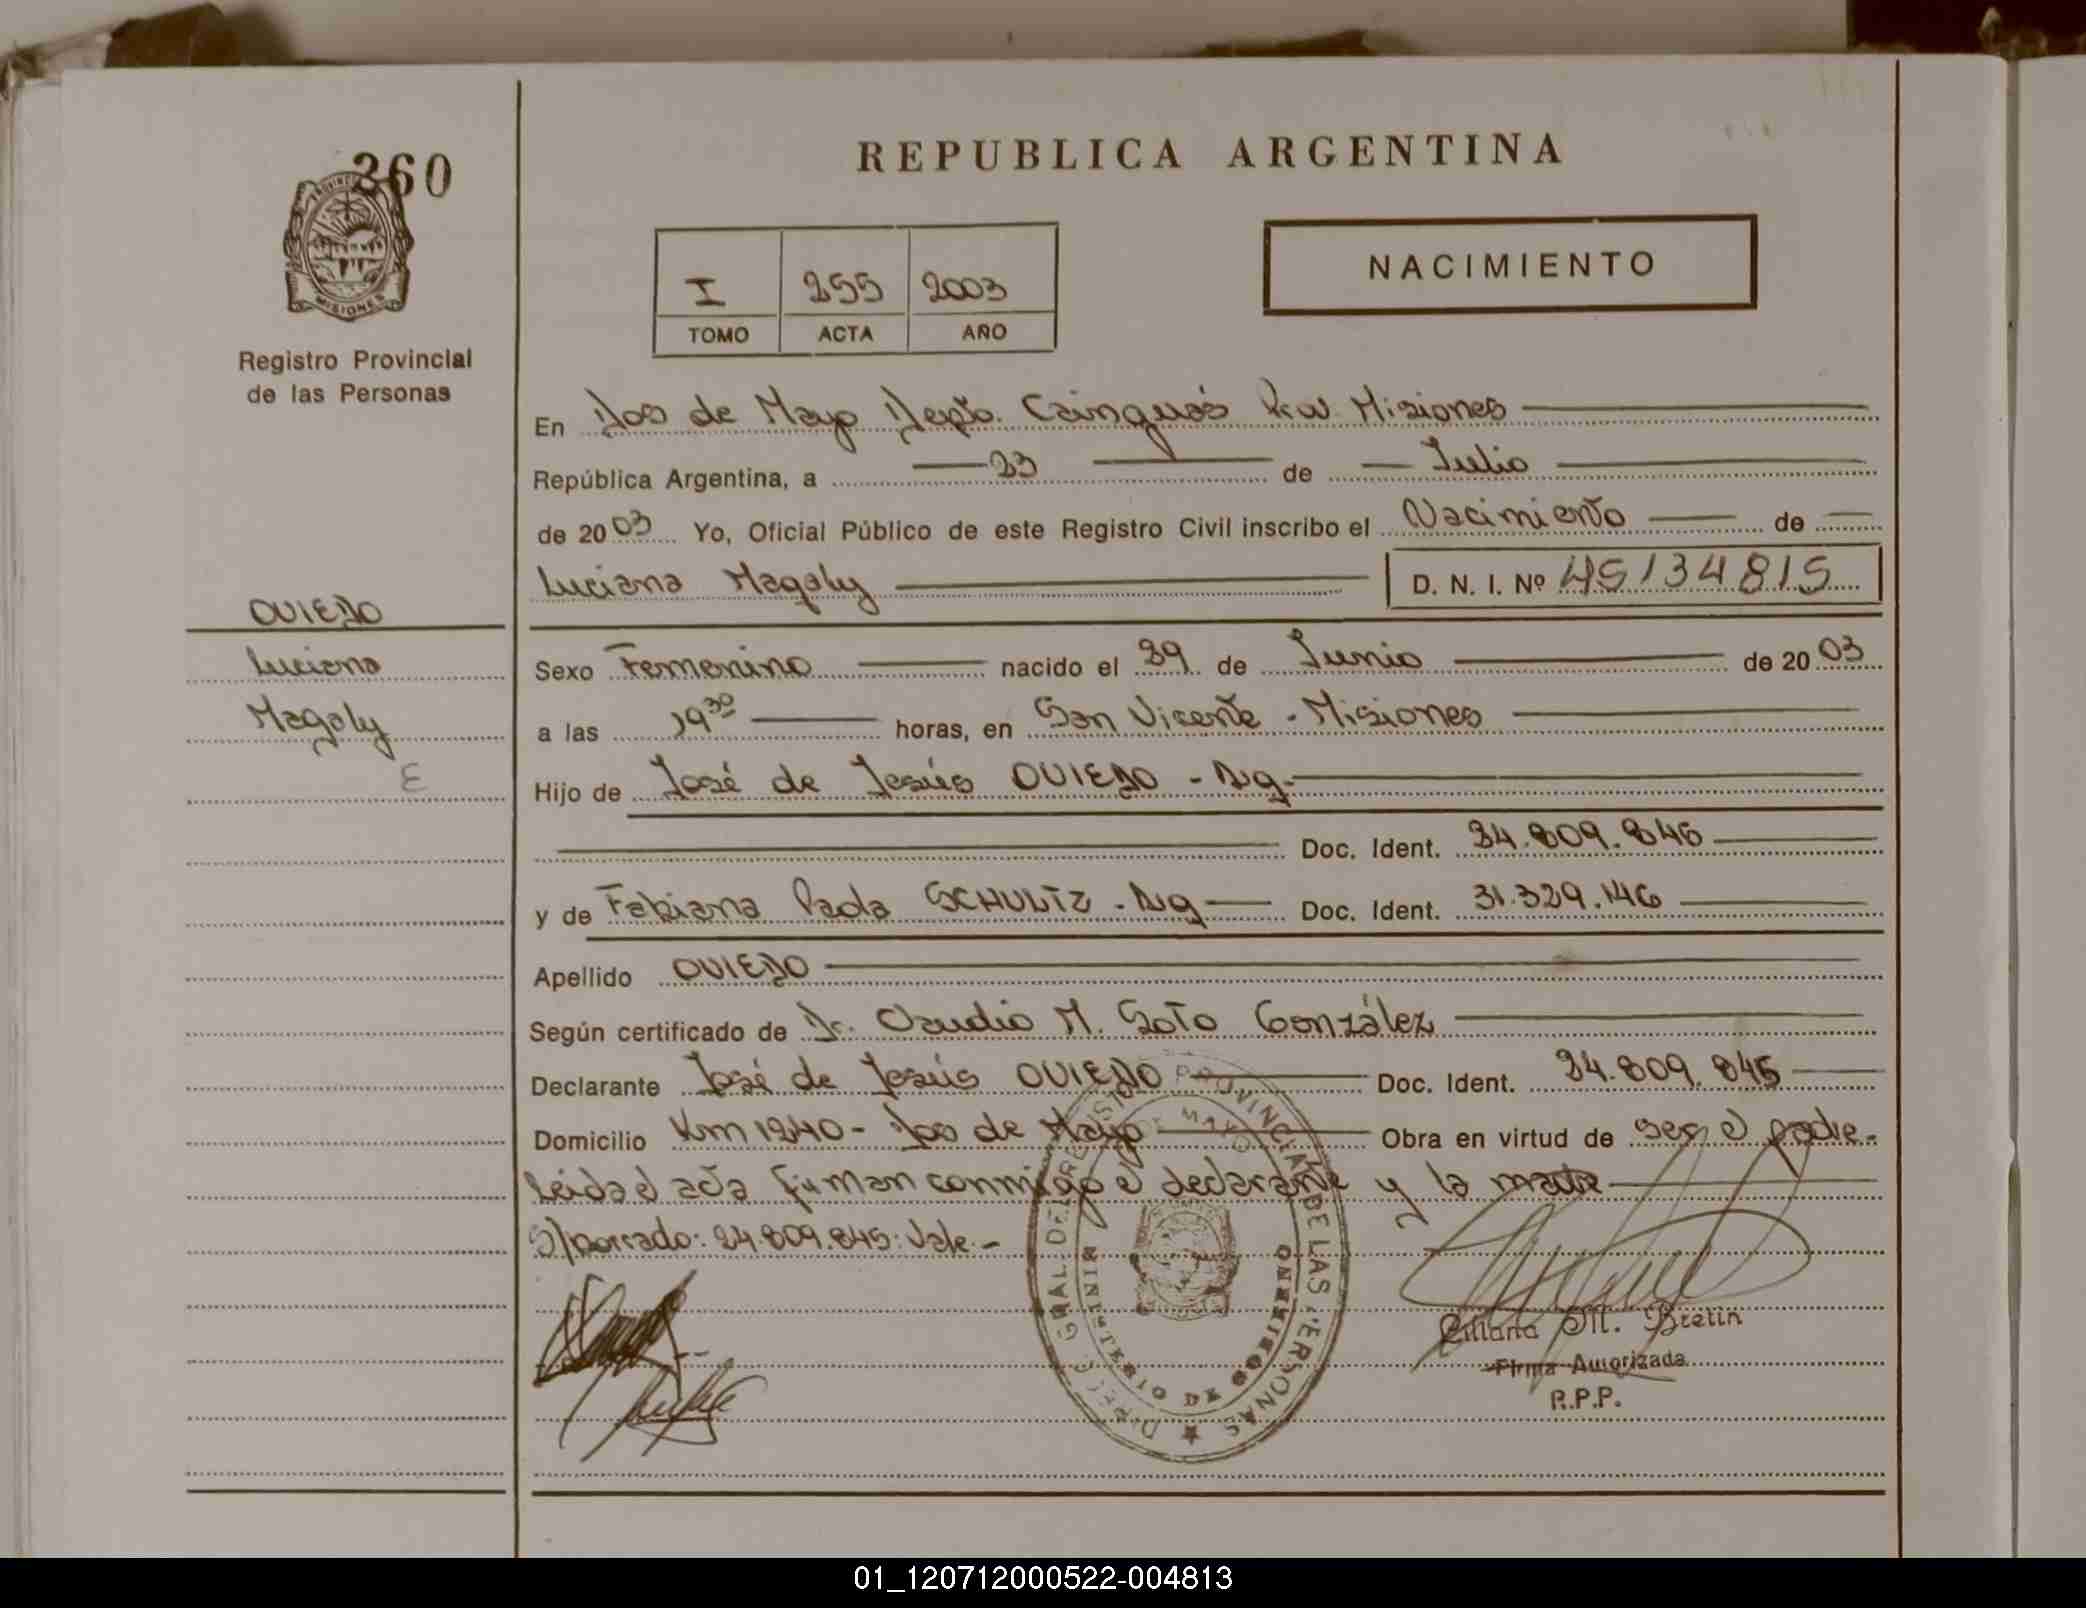 260
REPUBLICA ARGENTINA
PROVINCIA
MISIONES
Registro Provincial
de las Personas
I 255 2003
TOMO ACTA AÑO
NACIMIENTO
En Dos de Mayo Depto. Cainguás Prov. Misiones
República Argentina, a 23 de Julio
de 2003 Yo, Oficial Público de este Registro Civil inscribo el Nacimiento de
Luciana Magaly D. N. I. Nº 45134815
OVIEDO
Luciana
Magaly
Sexo Femenino nacido el 29 de Junio de 2003
a las 19 30 horas, en San Vicente - Misiones
Hijo de José de Jesús OVIEDO - Arg -
Doc. Ident. 24.809.845
y de Fabiana Paola SCHULTZ - Arg Doc. Ident. 31.329.146
Apellido OVIEDO
Según certificado de Dr. Claudio M. Soto González
Declarante José de Jesús OVIEDO Doc. Ident. 24.809.845
Domicilio Km 1240 - Dos de Mayo Obra en virtud de ser el padre.
Leída el acta firman conmigo el declarante y la madre
S/borrado: 24.809.845: Vale. -
PROVINCIAL DE LAS PERSONAS
MINISTERIO DE GOBIERNO
Liliana M. Bretin
Firma Autorizada
R.P.P.
01_120712000522-004813